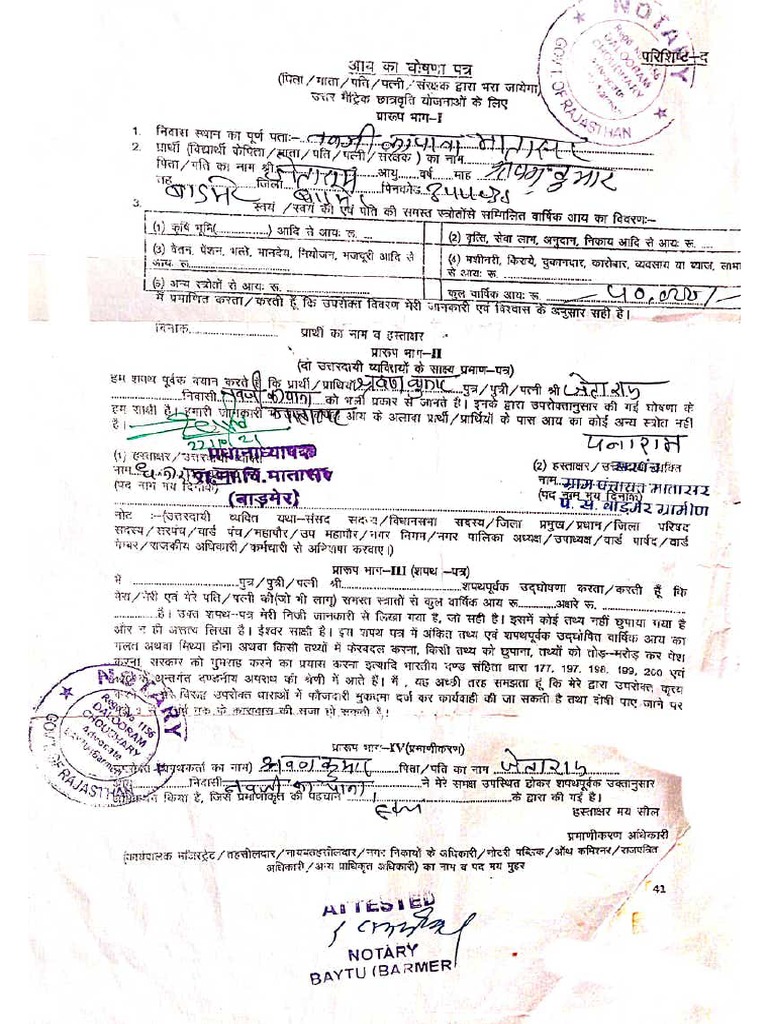 NOTARY
Regd.No.1156
DALOORAM
CHOUDHARY
Advocate
GOVT.OF RAJASTHAN
परिशिष्ट-द
आय का घोषणा पत्र
(पिता/माता/पति/पत्नी/संरक्षक द्वारा भरा जायेगा)
उत्तर मैट्रिक छात्रवृति योजनाओं के लिए
प्रारूप भाग-I
1. निवास स्थान का पूर्ण पताः- नवजी का पाना मातासर
2. प्रार्थी (विद्यार्थी के पिता/माता/पति/पत्नी/संरक्षक) का नाम श्रवण कुमार
पिता/पति का नाम श्री जेताराम आयु वर्ष माह
तह बाडमेर जिला बाडमेर पिनकोड
3. स्वयं/स्वयं की एवं पति की समस्त स्त्रोतों से सम्मिलित वार्षिक आय का विवरणः-
(1) कृषि भूमि(..............) आदि से आयः रू. ....
(2) वृत्ति, सेवा लाभ, अनुदान, निकाय आदि से आयः रू. ....
(3) वेतन, पेंशन, भत्ते, मानदेय, नियोजन, मजदूरी आदि से आयः रू. ....
(4) मशीनरी, किराये, दुकानदार, कारोबार, व्यवसाय या ब्याज, लाभ से आयः रू. ....
(5) अन्य स्त्रोतों से आयः रू. ....
कुल वार्षिक आयः रू. 50,000/-
मैं प्रमाणित करता/करती हूँ कि उपरोक्त विवरण मेरी जानकारी एवं विश्वास के अनुसार सही है।
दिनांक.................... प्रार्थी का नाम व हस्ताक्षर
प्रारूप भाग-II
(दो उत्तरदायी व्यक्तियों के साक्ष्य प्रमाण-पत्र)
हम शपथ पूर्वक बयान करते है कि प्रार्थी/प्रार्थिया श्रवण कुमार पुत्र/पुत्री/पत्नी श्री जेताराम
निवासी नवजी का पाना को भली प्रकार से जानते है। इनके द्वारा उपरोक्तानुसार की गई घोषणा के
हम साक्षी है। हमारी जानकारी के अनुसार आय के अलावा प्रार्थी/प्रार्थिये के पास आय का कोई अन्य स्त्रोत नहीं
है।
22/10/21
पनाराम
प्रधानाध्यापक
(1) हस्ताक्षर/उत्तरदायी व्यक्ति
(2) हस्ताक्षर/उत्तरदायी व्यक्ति
सरपंच
नाम
रा.प्रा.वि.मातासर
नाम
ग्राम पंचायत मातासर
(पद नाम मय दिनांक)
(बाड़मेर)
(पद नाम मय दिनांक)
पं. स. बाडमेर ग्रामीण
नोट :-(उत्तरदायी व्यक्ति यथा-संसद सदस्य/विधानसभा सदस्य/जिला प्रमुख/प्रधान/जिला परिषद
सदस्य/सरपंच/वार्ड पंच/महापौर/उप महापौर/नगर निगम/नगर पालिका अध्यक्ष/उपाध्यक्ष/वार्ड पार्षद/वार्ड
मेम्बर/राजकीय अधिकारी/कर्मचारी से अभिशंषा करवाए।)
प्रारूप भाग-III (शपथ -पत्र)
मैं ................ पुत्र/पुत्री/पत्नी श्री................शपथपूर्वक उद्घोषणा करता/करती हूँ कि
मेरा/मेरी एवं मेरे पति/पत्नी की(जो भी लागू) समस्त स्त्रोतों से कुल वार्षिक आय रू ............अक्षरे रू. ............
............है। उक्त शपथ-पत्र मेरी निजी जानकारी से लिखा गया है, जो सही है। इसमें कोई तथ्य नहीं छुपाया गया है
और न ही असत्य लिखा है। ईश्वर साक्षी है। इस शपथ पत्र में अंकित तथ्य एवं शपथपूर्वक उद्घोषित वार्षिक आय का
गलत अथवा मिथ्या होना अथवा किसी तथ्यों में फेरबदल करना, किसी तथ्य को छुपाना, तथ्यों को तोड़-मरोड़ कर पेश
करना, सरकार को गुमराह करने का प्रयास करना इत्यादि भारतीय दण्ड संहिता धारा 177, 197, 198, 199, 200 एवं
के अन्तर्गत दण्डनीय अपराध की श्रेणी में आते हैं। मैं, यह अच्छी तरह समझता हूँ कि मेरे द्वारा उपरोक्त कृत्य
करने मेरे विरुद्ध उपरोक्त धाराओं में फौजदारी मुकदमा दर्ज कर कार्यवाही की जा सकती है तथा दोषी पाए जाने पर
वर्ष तक के कारावास की सजा हो सकती है।
NOTARY
Regd.No.1156
DALOORAM
CHOUDHARY
Advocate
Baytu(Barmer)
GOVT.OF RAJASTHAN
प्रारूप भाग-IV(प्रमाणीकरण)
(शपथकर्ता का नाम) श्रवण कुमार पिता/पति का नाम जेताराम
निवासी नवजी का पाना ने मेरे समक्ष उपस्थित होकर शपथपूर्वक उक्तानुसार
किया है, जिसे प्रमाणीकृत की पहचान के द्वारा की गई है।
हस्ताक्षर मय सील
प्रमाणीकरण अधिकारी
(कार्यपालक मजिस्ट्रेट/तहसीलदार/नायब तहसीलदार/नगर निकायों के अधिकारी/नोटरी पब्लिक/ऑथ कमिश्नर/राजपत्रित
अधिकारी/अन्य प्राधिकृत अधिकारी) का नाम व पद मय मुहर
41
ATTESTED
NOTARY
BAYTU (BARMER)